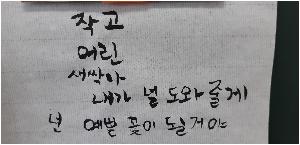 작고
여린
새싹아
내가 널 도와 줄게
넌 예쁜 꽃이 될거야